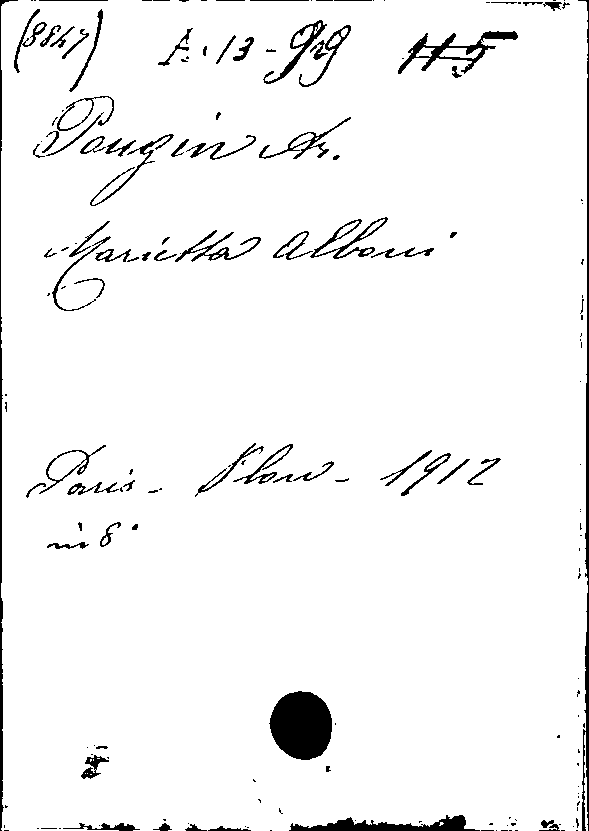 (8847) A. 13 - 115
Pougin Ar.
Marietta Alboni
Paris - Plon - 1912
in 8°